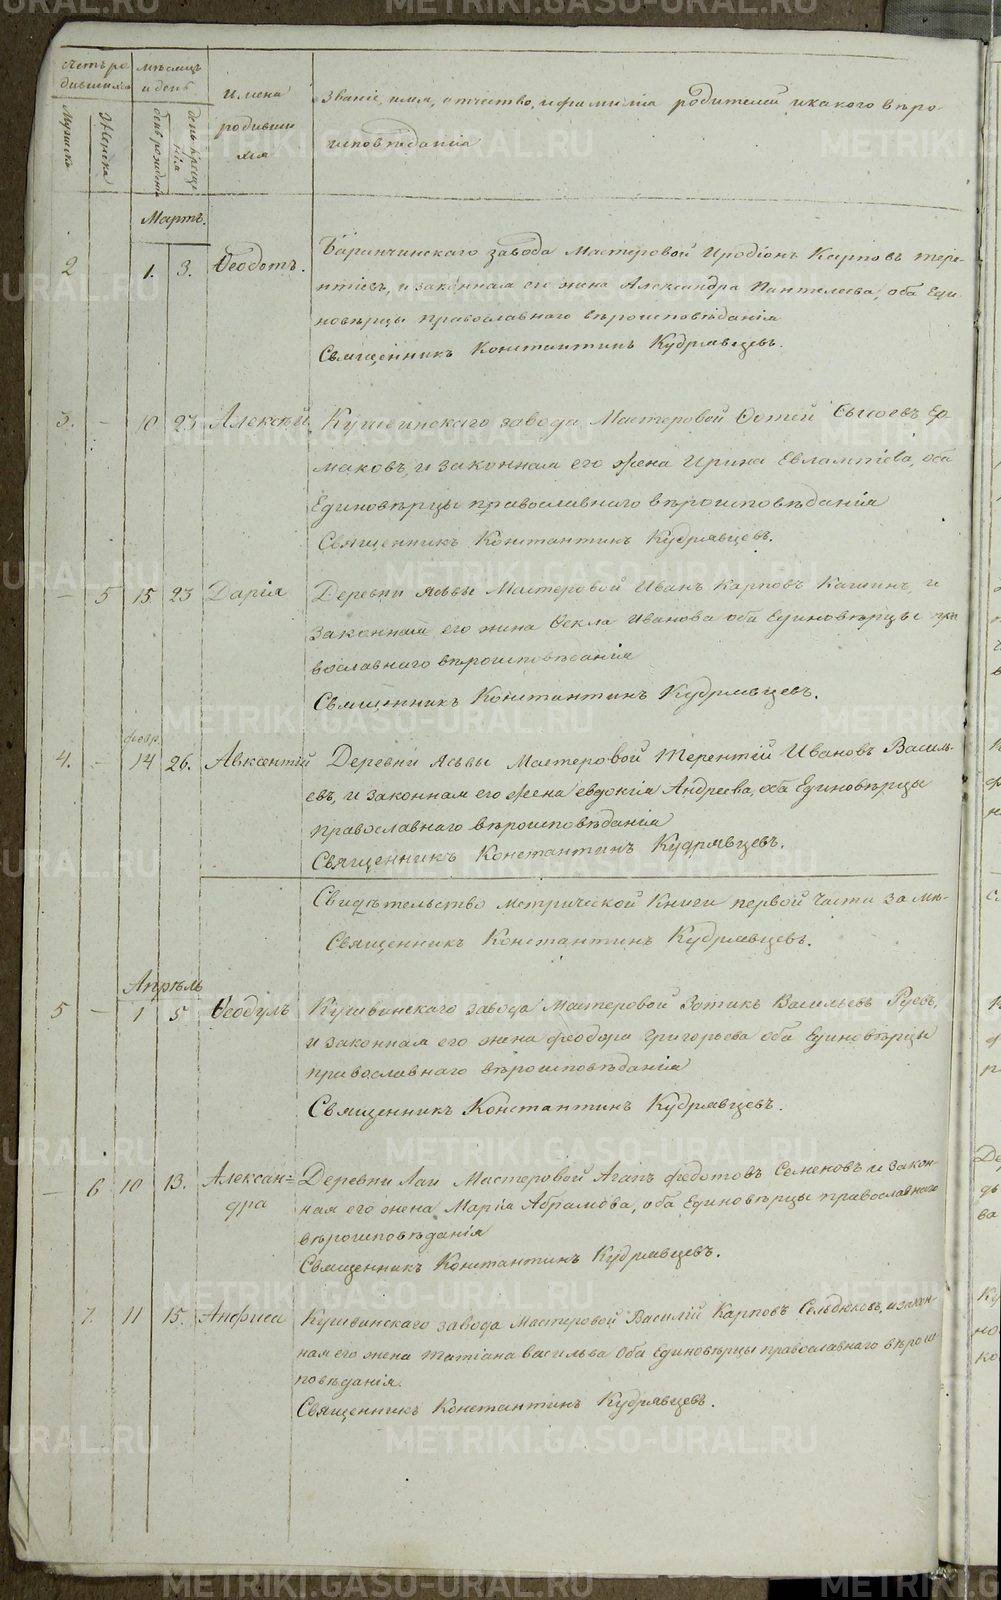 Счетъ ро
дившихся
мѣсяцъ
и день
Мужескъ
Женска
день рожденія
день креще
нія
Имена
родивши
хся
Званіе, имя, отчество, и фамилія родителей и какого вѣро-
исповѣданія
Мартъ.
2 - 1. 3. Ѳеодотъ. Баранчинскаго завода Мастеровой Иродіонъ Карповъ Тере-
нтіевъ, и законная его жена Александра Пантелеева, оба Еди-
новѣрцы православнаго вѣроисповѣданія
Священникъ Константинъ Кудрявцевъ.
3. - 10 23 Алексѣй Кушвинскаго завода Мастеровой Сысоевъ Ер-
маковъ, и законная его жена Ирина Евлампіева, оба
Единовѣрцы православнаго вѣроисповѣданія
Священникъ Константинъ Кудрявцевъ.
- 5 15 23 Дарія Деревни Ясьвы Мастеровой Иванъ Карповъ Кашинъ, и
законная его жена Ѳекла Иванова оба Единовѣрцы пра
вославнаго вѣроисповѣданія
Священникъ Константинъ Кудрявцевъ.
февр.
4. - 14 26. Авксентій Деревни Ясьвы Мастеровой Терентій Ивановъ Василь-
евъ, и законная его жена Евдокия Андреева, оба Единовѣрцы
православнаго вѣроисповѣданія
Священникъ Константинъ Кудрявцевъ.
Свидѣтельство метрической Книги первой части за мѣ-
Священникъ Константинъ Кудрявцевъ.
Апрѣль
5 - 1 5 Ѳеодулъ Кушвинскаго завода Мастеровой Зотикъ Васильевъ Руевъ,
и законная его жена Феодора Григорьева оба Единовѣрцы
православнаго вѣроисповѣданія
Священникъ Константинъ Кудрявцевъ.
- 6 10 13. Алексан= Деревни Лаи Мастеровой Агапъ Федотовъ Семеновъ и закон-
дра ная его жена Марія Абрамова, оба Единовѣрцы православнаго
вѣроисповѣданія
Священникъ Константинъ Кудрявцевъ.
7. 11 15. Анфиса Кушвинскаго завода Мастеровой Василій Карповъ Сельдюковъ, и закон-
ная его жена Татіана Васильва Оба Единовѣрцы православнаго вѣроис-
повѣданія.
Священникъ Константинъ Кудрявцевъ.
METRIKI.GASO-URAL.RU